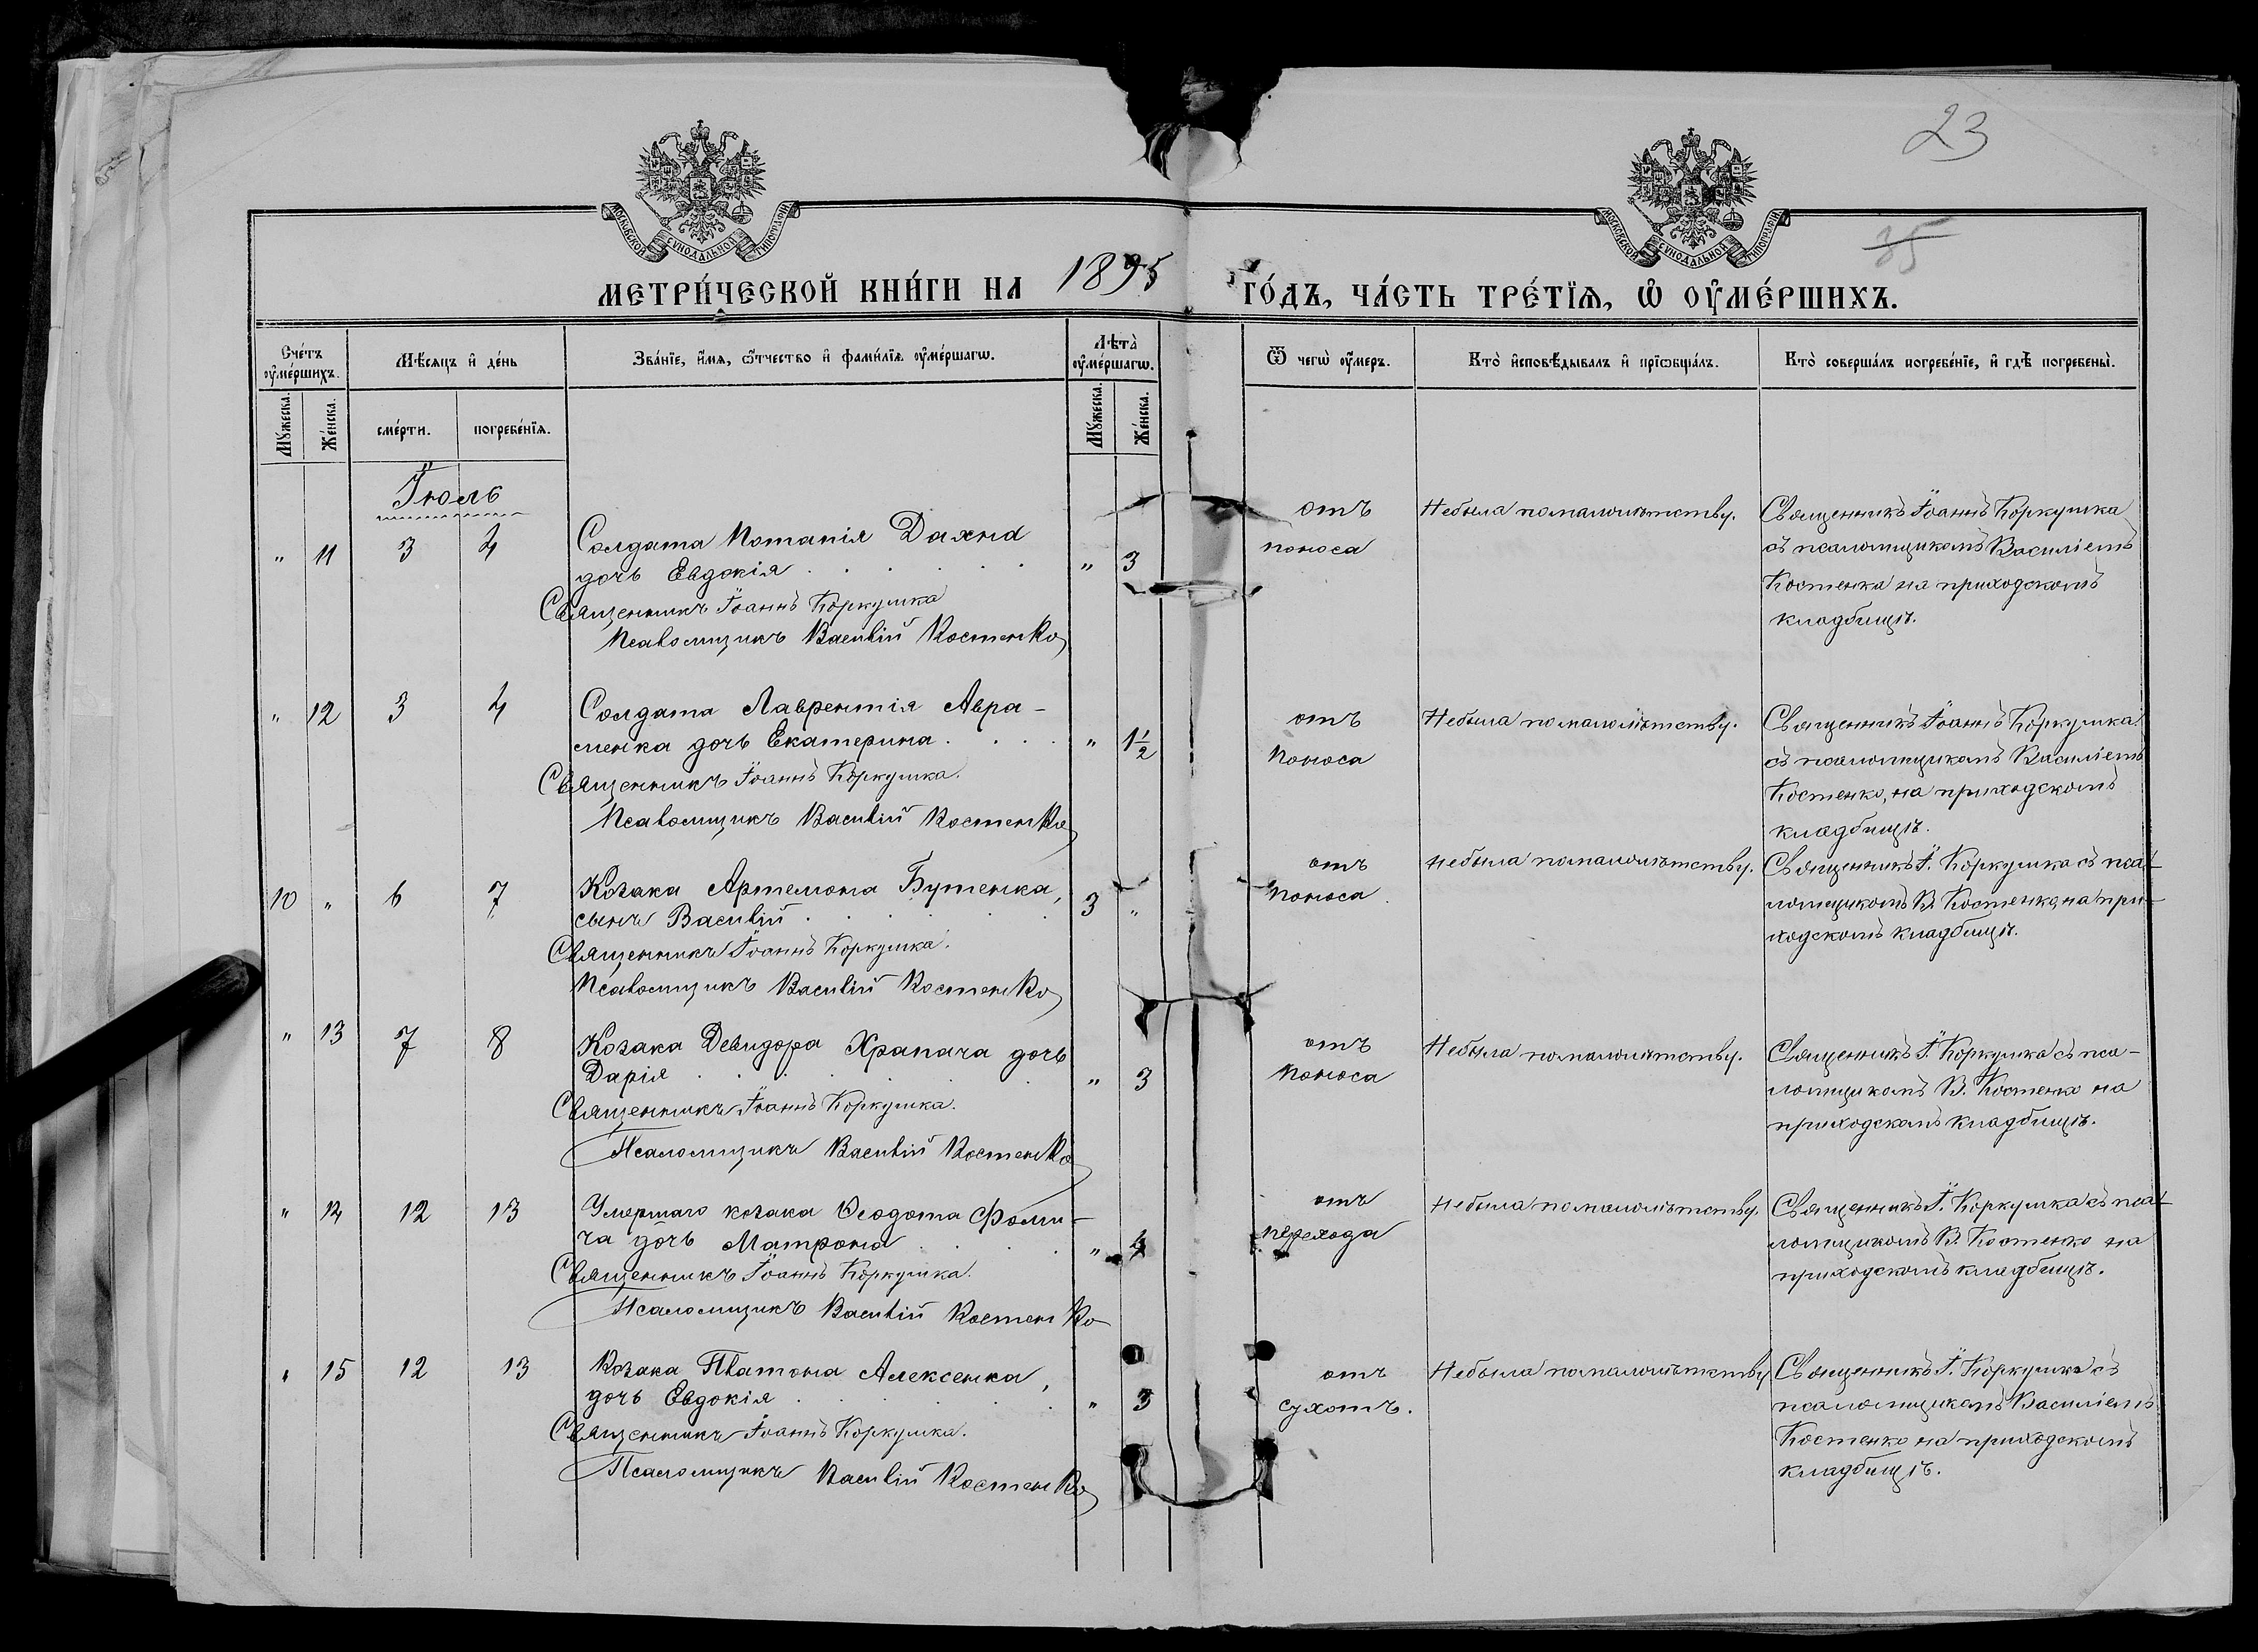 23
35
МОСКОВСКОЙ СѴНОДАЛЬНОЙ ТИПОГРАФІИ
МОСКОВСКОЙ СѴНОДАЛЬНОЙ ТИПОГРАФІИ
МЕТРИ́ЧЕСКОЙ КНИ́ГИ НА 1895 ГО́ДЪ, ЧА́СТЬ ТРЕ́ТІѦ, Ѡ҆ ОУ҆МЕ́РШИХЪ.
Сче́тъ оу҆ме́ршихъ.
Мѣ́сяцъ и҆ де́нь
Зва́нїе, и҆́мѧ, ѻ҆́тчество и҆ фами́лїѧ оу҆ме́ршагѡ.
Лѣ̀та оу҆ме́ршагѡ.
Ѿ чегѡ̀ оу҆́меръ.
Кто̀ и҆сповѣ́дывалъ и҆ прїѡбща́лъ.
Кто̀ соверша́лъ погребе́нїе, и҆ гдѣ̀ погребены̀.
Мꙋ́жеска. Же́нска. сме́рти. погребе́нїѧ. Мꙋ́жеска. Же́нска.
Іюль
" 11 3 4 Солдата Потапія Дахна
дочь Евдокія " 3
Священникъ Іоаннъ Коркушка
Псаломщикъ Василій Костенко
отъ
поноса
Небыла помалолѣтству.
Священникъ Іоаннъ Коркушка
съ псаломщикомъ Василіемъ
Костенка на приходскомъ
кладбищѣ.
" 12 3 4 Солдата Лаврентія Авра-
менка дочь Екатерина " 1½
Священникъ Іоаннъ Коркушка.
Псаломщикъ Василій Костенко
отъ
поноса
Небыла помалолѣтству.
Священникъ Іоаннъ Коркушка
съ псаломщикомъ Василіемъ
Костенко, на приходскомъ
кладбищѣ.
10 " 6 7 Козака Артемона Бутенка,
сынъ Василій 3 "
Священникъ Іоаннъ Коркушка.
Псаломщикъ Василій Костенко
отъ
поноса
небыла помалолѣтству.
Священникъ І. Коркушка съ пса-
ломщикомъ В. Костенко, на при-
ходскомъ кладбищѣ.
" 13 7 8 Козака Девидора Храпача дочь
Дарія " 3
Священникъ Іоаннъ Коркушка.
Псаломщикъ Василій Костенко
отъ
поноса
Небыла помалолѣтству.
Священникъ І. Коркушка съ пса-
ломщикомъ В. Костенко на
приходскомъ кладбищѣ.
" 14 12 13 Умершаго козака Ѳеодота Фоми-
ча дочь Матрона " 4
Священникъ Іоаннъ Коркушка.
Псаломщикъ Василій Костенко
отъ
перехода
Небыла помалолѣтству.
Священникъ І. Коркушка съ пса-
ломщикомъ В. Костенко на
приходскомъ кладбищѣ.
" 15 12 13 Козака Платона Алексенка,
дочь Евдокія " 3
Священникъ Іоаннъ Коркушка.
Псаломщикъ Василій Костенко
отъ
сухотъ.
Небыла помалолѣтству
Священникъ І. Коркушка съ
псаломщикомъ Василіемъ
Костенко на приходскомъ
кладбищѣ.